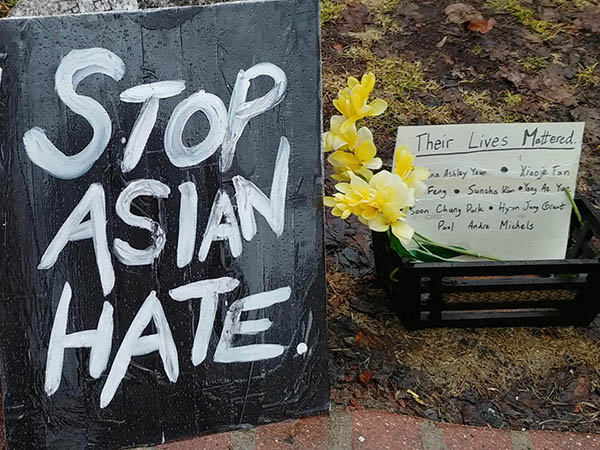 STOP
ASIAN
HATE.
Their Lives Mattered.
Ashley Yaun • Xiaoje Tan
Feng • Suncha Kim • Yong Ae
Soon Chung Park • Hyun Jung Grant
Paul Andre Michels